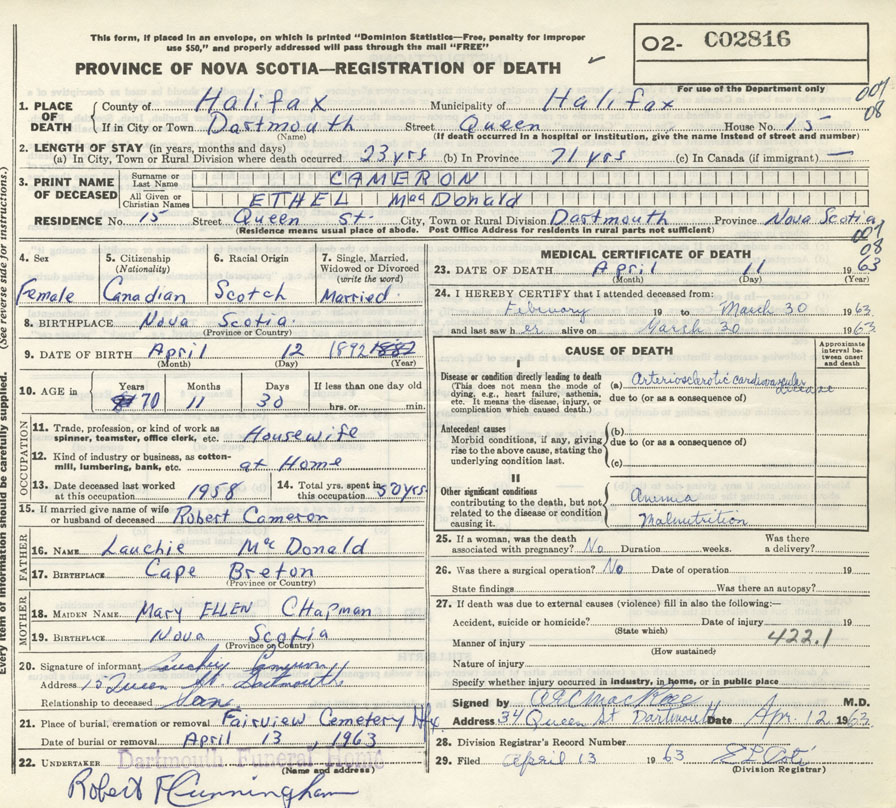 This form, if placed in an envelope, on which is printed "Dominion Statistics—Free, penalty for improper
use $50," and properly addressed will pass through the mail "FREE"
O2- C02816
PROVINCE OF NOVA SCOTIA—REGISTRATION OF DEATH
For use of the Department only
007
08
1. PLACE OF DEATH
County of Halifax Municipality of Halifax
If in City or Town Dartmouth Street Queen House No. 15
(Name) (If death occurred in a hospital or institution, give the name instead of street and number)
2. LENGTH OF STAY (in years, months and days)
(a) In City, Town or Rural Division where death occurred 23 yrs (b) In Province 71 yrs (c) In Canada (if immigrant) —
3. PRINT NAME OF DECEASED
Surname or Last Name CAMERON
All Given or Christian Names ETHEL MacDonald
RESIDENCE No. 15 Street Queen St. City, Town or Rural Division Dartmouth Province Nova Scotia
(Residence means usual place of abode. Post Office Address for residents in rural parts not sufficient)
007
08
(See reverse side for instructions.)
Every item of information should be carefully supplied.
4. Sex Female
5. Citizenship (Nationality) Canadian
6. Racial Origin Scotch
7. Single, Married, Widowed or Divorced (write the word) Married.
8. BIRTHPLACE Nova Scotia
(Province or Country)
9. DATE OF BIRTH April 12 1892
(Month) (Day) (Year)
10. AGE in Years 70 Months 11 Days 30 If less than one day old
hrs. or min.
OCCUPATION
11. Trade, profession, or kind of work as spinner, teamster, office clerk, etc. Housewife
12. Kind of industry or business, as cotton-mill, lumbering, bank, etc. at Home
13. Date deceased last worked at this occupation 1958
14. Total yrs. spent in this occupation 50 yrs
15. If married give name of wife or husband of deceased Robert Cameron
FATHER
16. NAME Lauchie McDonald
17. BIRTHPLACE Cape Breton
(Province or Country)
MOTHER
18. MAIDEN NAME Mary ELLEN CHapman
19. BIRTHPLACE Nova Scotia
(Province or Country)
20. Signature of informant Cameron
Address 15 Queen St. Dartmouth
Relationship to deceased Son
21. Place of burial, cremation or removal Fairview Cemetery Hfx
Date of burial or removal April 13, 1963
22. UNDERTAKER Dartmouth Funeral Home
(Name and address)
Robert F Cunningham
MEDICAL CERTIFICATE OF DEATH
23. DATE OF DEATH April 11 1963
(Month) (Day) (Year)
24. I HEREBY CERTIFY that I attended deceased from:
February 19 to March 30 1963
and last saw her alive on March 30 1963
CAUSE OF DEATH
Approximate interval between onset and death
I
Disease or condition directly leading to death
(This does not mean the mode of dying, e.g., heart failure, asthenia, etc. It means the disease, injury, or complication which caused death.)
(a) Arteriosclerotic cardiovascular disease
due to (or as a consequence of)
Antecedent causes
Morbid conditions, if any, giving rise to the above cause, stating the underlying condition last.
(b)
due to (or as a consequence of)
(c)
II
Other significant conditions
contributing to the death, but not related to the disease or condition causing it.
Anemia
Malnutrition
25. If a woman, was the death associated with pregnancy? No Duration weeks. Was there a delivery?
26. Was there a surgical operation? No Date of operation 19
State findings Was there an autopsy?
27. If death was due to external causes (violence) fill in also the following:—
Accident, suicide or homicide? Date of injury 19
(State which)
Manner of injury 422.1
(How sustained)
Nature of injury
Specify whether injury occurred in industry, in home, or in public place
Signed by M.D.
Address 34 Queen St Dartmouth Date Apr. 12 1963
28. Division Registrar's Record Number
29. Filed April 13 1963
(Division Registrar)